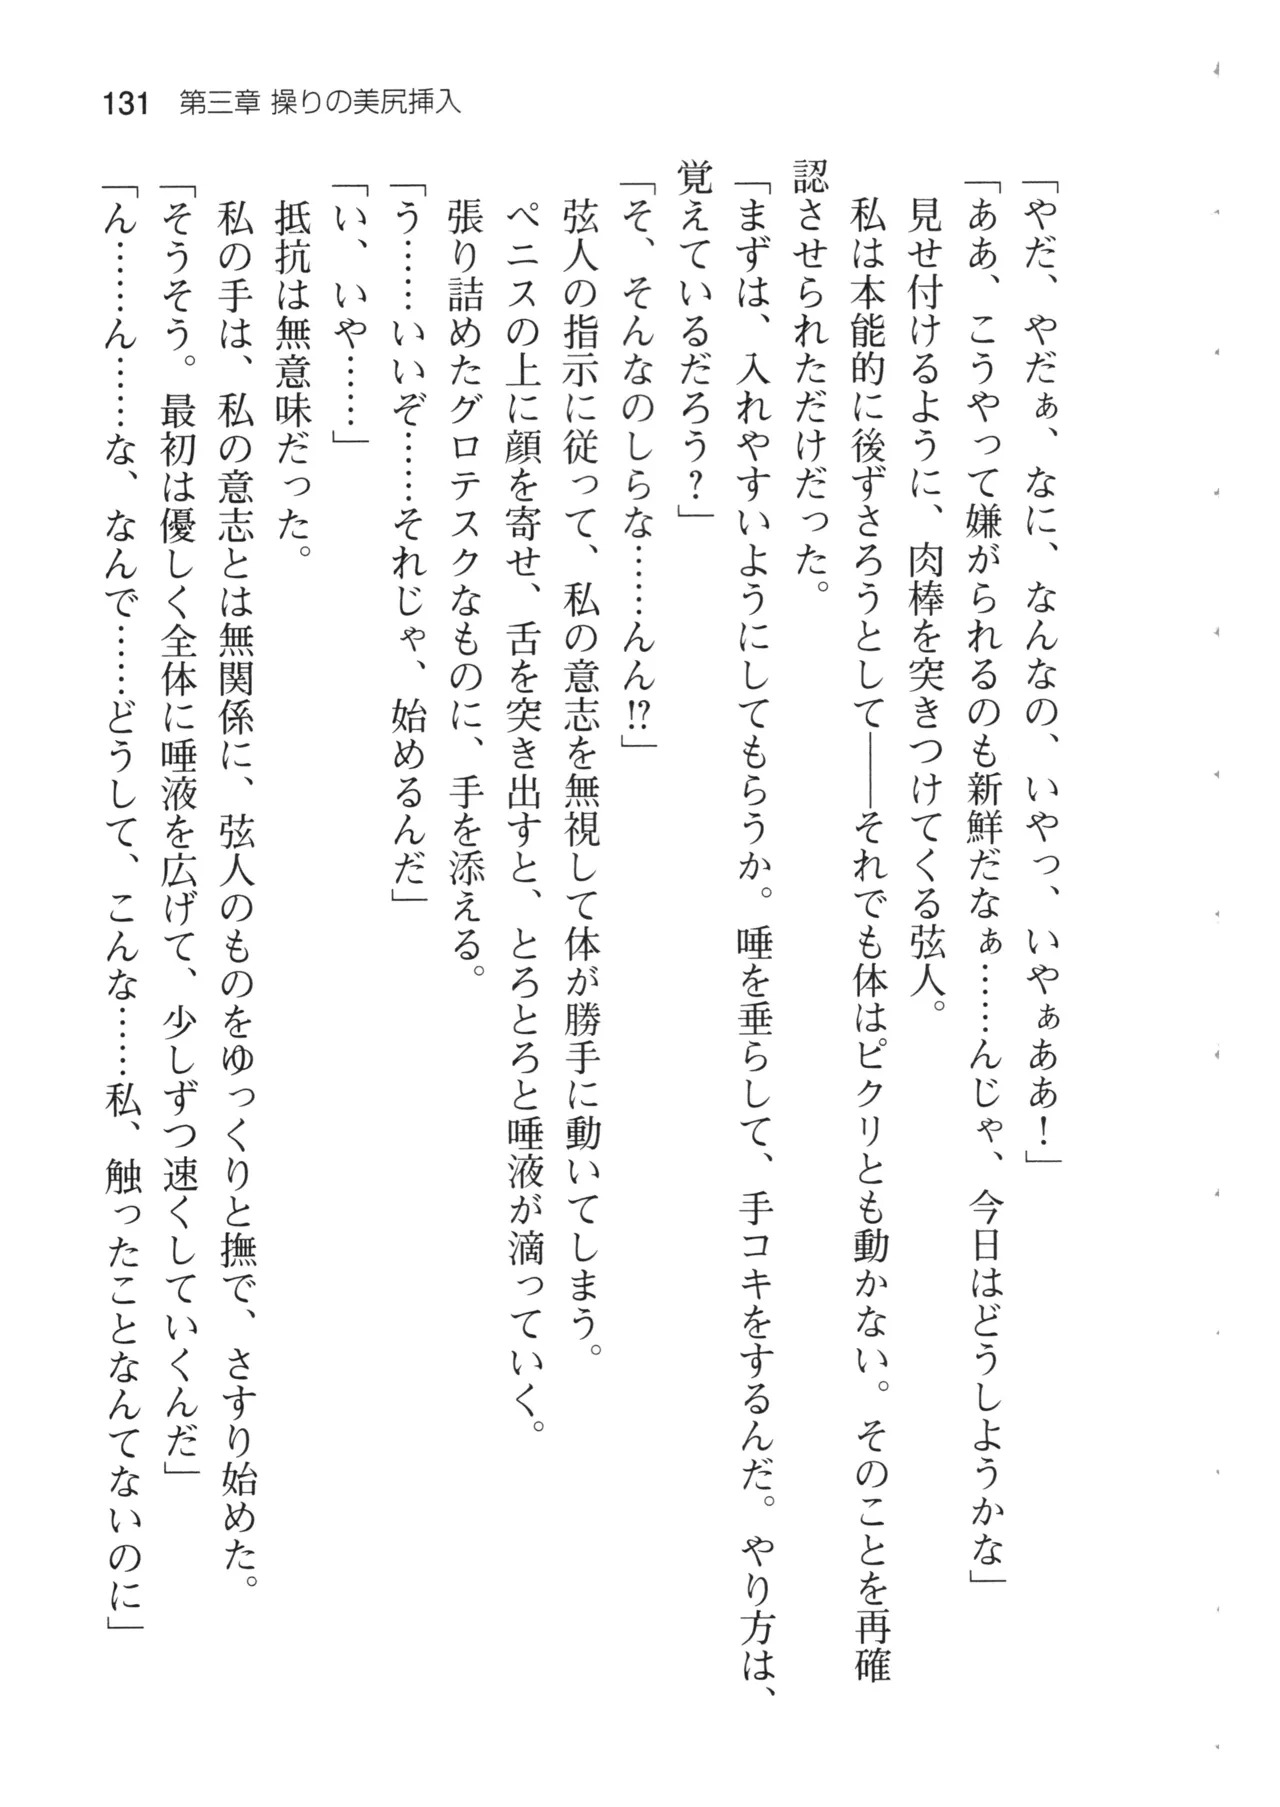 131 第三章 操りの美尻挿入
「やだ、やだぁ、なに、なんなの、いやっ、いやぁああ！」
「ああ、こうやって嫌がられるのも新鮮だなぁ……んじゃ、今日はどうしようかな」
見せ付けるように、肉棒を突きつけてくる弦人。
私は本能的に後ずさろうとして――それでも体はピクリとも動かない。そのことを再確
認させられただけだった。
「まずは、入れやすいようにしてもらうか。唾を垂らして、手コキをするんだ。やり方は、
覚えているだろう？」
「そ、そんなのしらな……んん!?」
弦人の指示に従って、私の意志を無視して体が勝手に動いてしまう。
ペニスの上に顔を寄せ、舌を突き出すと、とろとろと唾液が滴っていく。
張り詰めたグロテスクなものに、手を添える。
「う……いいぞ……それじゃ、始めるんだ」
「い、いや……」
抵抗は無意味だった。
私の手は、私の意志とは無関係に、弦人のものをゆっくりと撫で、さすり始めた。
「そうそう。最初は優しく全体に唾液を広げて、少しずつ速くしていくんだ」
「ん……ん……な、なんで……どうして、こんな……私、触ったことなんてないのに」